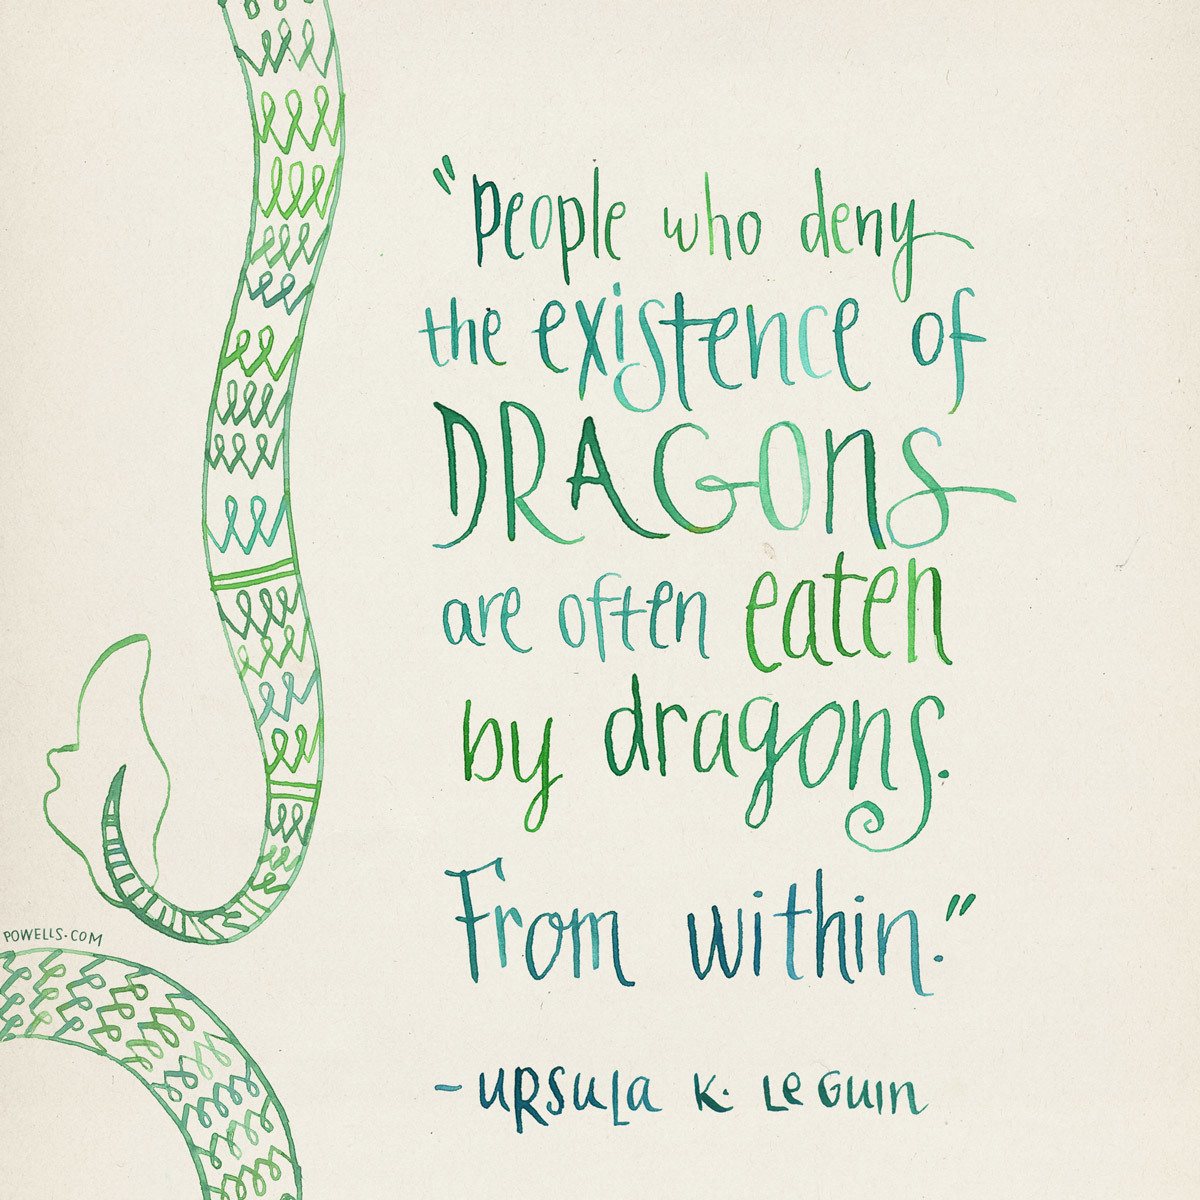 "People who deny
the existence of
DRAGONS
are often eaten
by dragons.
From within."
- URSULA K. Le GUIN
POWELLS.COM